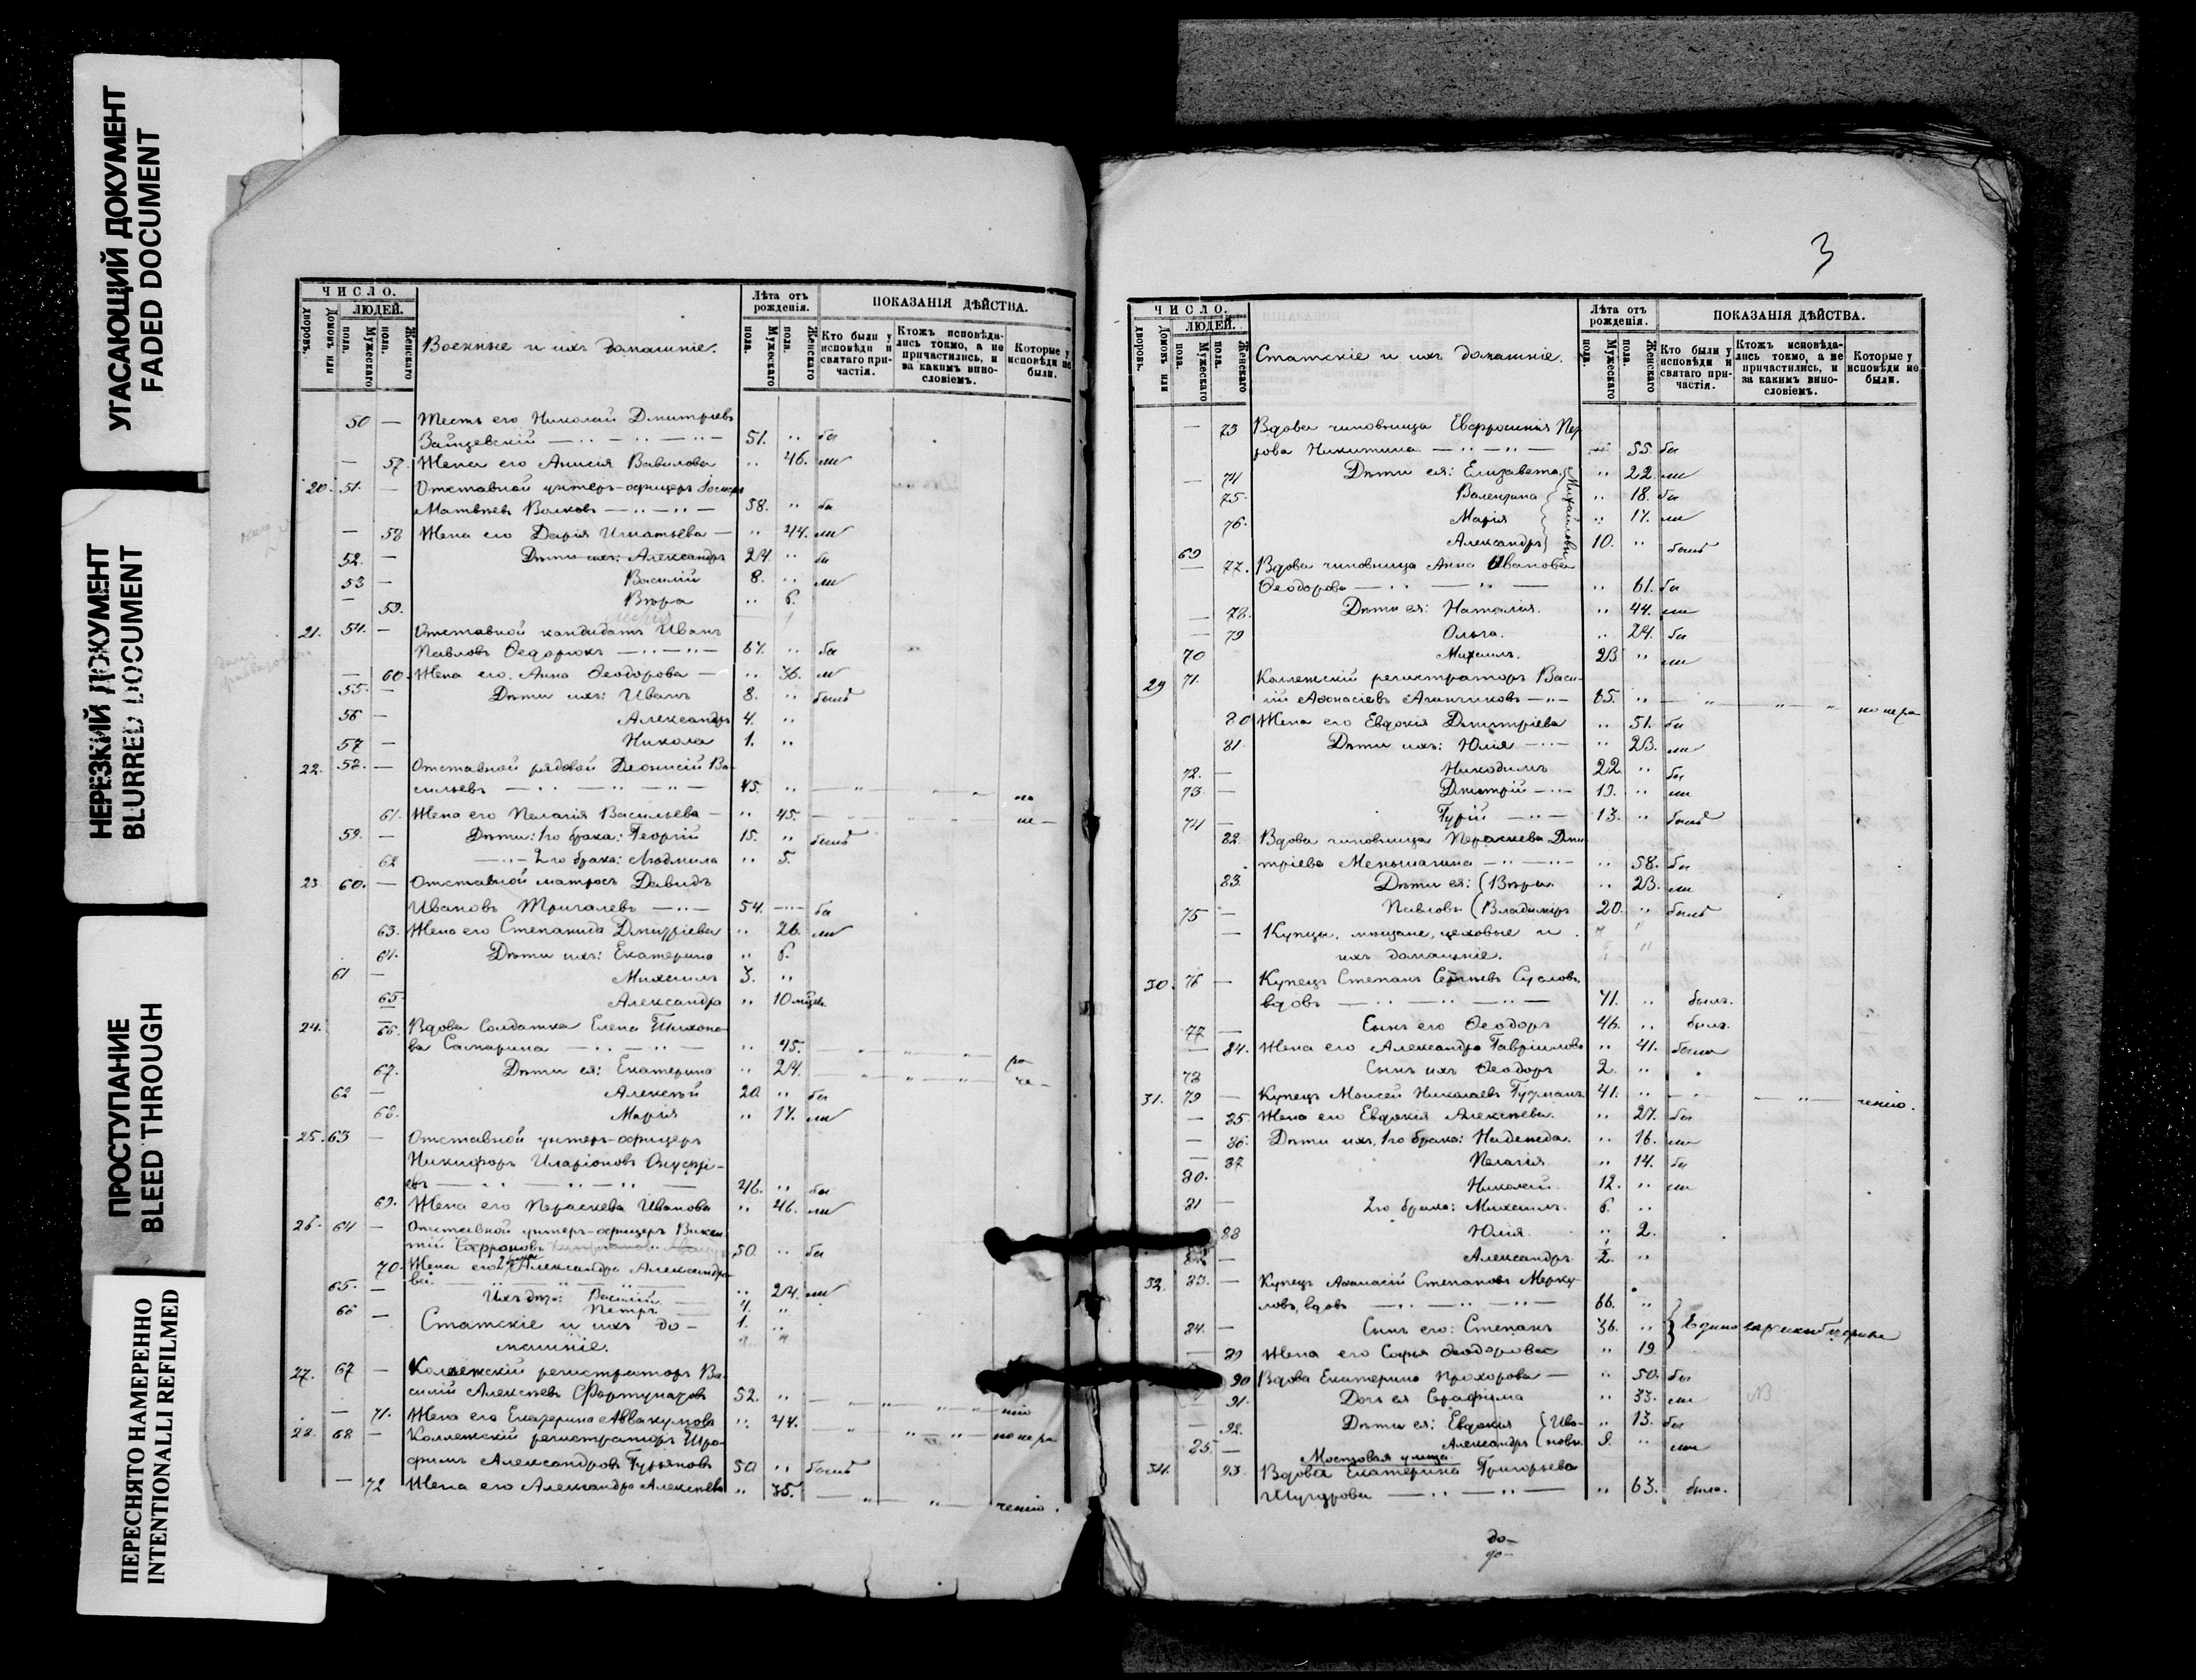 УГАСАЮЩИЙ ДОКУМЕНТ
FADED DOCUMENT
НЕРЕЗКИЙ ДОКУМЕНТ
BLURRED DOCUMENT
ПРОСТУПАНИЕ
BLEED THROUGH
ПЕРЕСНЯТО НАМЕРЕННО
INTENTIONALLI REFILMED
ЧИСЛО.
ЛЮДЕЙ.
Домовъ или дворовъ.
Мужескаго пола.
Женскаго пола.
Военные и ихъ домашніе.
Лѣта отъ рожденія.
Мужескаго пола.
Женскаго пола.
ПОКАЗАНІЯ ДѢЙСТВА.
Кто были у исповѣди и святаго причастія.
Ктожъ исповѣдались токмо, а не причастились, и за какимъ винословіемъ.
Которые у исповѣди не были.
50 — Тесть его Николай Дмитріевъ
Зайцевскій 51. " бы
— 57. Жена его Анисія Вавилова " 46. ли
20. 51. — Отставной унтеръ-офицеръ
Матвѣевъ Волковъ 58. " бы
— 58 Жена его Дарія Игнатьева " 44. ли
52. — Дѣти ихъ: Александръ 24. " бы
53 — Василій 8. " ли
— 59. Вѣра " 6.
21. 54. — Отставной кандидатъ Иванъ
Павловъ Ѳедорюкъ 67. " бы
— 60 Жена его Анна Ѳеодорова " 36. ли
55. — Дѣти ихъ: Иванъ 8. " былъ
56 — Александръ 4. "
57 — Никола 1. "
22. 58. — Отставной рядовой Діонисій Ва-
сильевъ 45. " по
61. Жена его Пелагія Васильева " 45. не-
59. — Дѣти: 1го брака: Георгій 15. " былъ
62 2го брака: Людмила " 5.
23. 60. — Отставной матросъ Давидъ
Ивановъ Тригалевъ 54. бы
63. Жена его Степанида Дмитріева " 26. ли
64. Дѣти ихъ: Екатерина " 6.
61 — Михаилъ 3. "
65 Александра " 10 мѣсяц.
24. 66. Вдова Солдатка Елена Тихоно-
ва Самарина " 45. ра
67. Дѣти ея: Екатерина " 24. че-
62 — Алексѣй 20 " бы
68. Марія " 17. ли
25. 63 — Отставной унтеръ-офицеръ
Никифоръ Иларіоновъ
евъ 46. " бы
69. Жена его Параскева Иванова " 46. ли
26. 64 — Отставной унтеръ-офицеръ Викен-
тій Софроновъ 50. " бы
70. Жена его Александра Александро-
ва " 24. ли
65. — Ихъ дѣти: Василій 4. "
66 — Петръ 1. "
Статскіе и ихъ до-
машніе.
27. 67 — Коллежскій регистраторъ Ва-
силій Алексѣевъ Фортунатовъ 52. "
— 71. Жена его Екатерина Аввакумова " 44. нію
28. 68 — Коллежскій регистраторъ Тро-
фимъ Александровъ Гурьяновъ 50 " былъ
— 72 Жена его Александра Алексѣева " 35. ченію.
3
ЧИСЛО.
ЛЮДЕЙ.
Домовъ или дворовъ.
Мужескаго пола.
Женскаго пола.
Статскіе и ихъ домашніе.
Лѣта отъ рожденія.
Мужескаго пола.
Женскаго пола.
ПОКАЗАНІЯ ДѢЙСТВА.
Кто были у исповѣди и святаго причастія.
Ктожъ исповѣдались токмо, а не причастились, и за какимъ винословіемъ.
Которые у исповѣди не были.
— 73 Вдова чиновница Евфросинія
Никитина 55. бы
— 74 Дѣти ея: Елизавета " 22. ли
75. Валентина " 18. бы
76. Марія " 17. ли
69 Александръ 10. " былъ
Михайловы
— 77. Вдова чиновница Анна Иванова
Ѳеодорова " 61. бы
— 78. Дѣти ея: Наталія. " 44. ли
— 79 Ольга. " 24. бы
70 Михаилъ. 23 " ли
29 71. Коллежскій регистраторъ Васи-
лій Аѳонасіевъ 65. "
80 Жена его Евдокія Дмитріева " 51. бы
81 Дѣти ихъ: Юлія " 23. ли
72. — Никодимъ 22. " бы
73. — Дмитрій 19. " ли
74 — Гурій 13. " былъ
82. Вдова чиновница Параскева Дми-
тріева Меньшагина " 58. бы
83. Дѣти ея: (Вѣра. " 23. ли
75 — Павловы (Владиміръ 20. " былъ
— Купцы, мѣщане, цеховые и
ихъ домашніе.
30. 76 — Купецъ Степанъ Сергѣевъ Сусловъ,
вдовъ 71. " былъ.
77 — Сынъ его Ѳеодоръ 46. " былъ.
— 84. Жена его Александра Гавріилова " 41. была
78 Сынъ ихъ Ѳеодоръ 2. "
31. 79 — Купецъ Моисей Николаевъ 41. " ченію.
— 85 Жена его Евдокія Алексѣева. " 27. бы
— 86. Дѣти ихъ, 1го брака: Надежда. " 16. ли
— 87 Пелагія " 14. бы
80. Николай 12. " ли
81 — 2го брака: Михаилъ. 6. "
88 Юлія. " 2.
82 — Александръ ½. "
32. 83. — Купецъ Аѳанасій Степановъ Мерку-
ловъ, вдовъ 66. "
84. — Сынъ его: Степанъ 36. "
— 89 Жена его Софья Ѳеодорова " 19
90 Вдова Екатерина Прохорова " 50. бы
91. Дочь ея Серафима " 33. ли
— 92. Дѣти ея: Евдокія (Ива- " 13. бы
85 — Александръ (новы. 9. " ли
Мостовая улица.
34. 93. Вдова Екатерина Григорьева
" 63. была.
до-